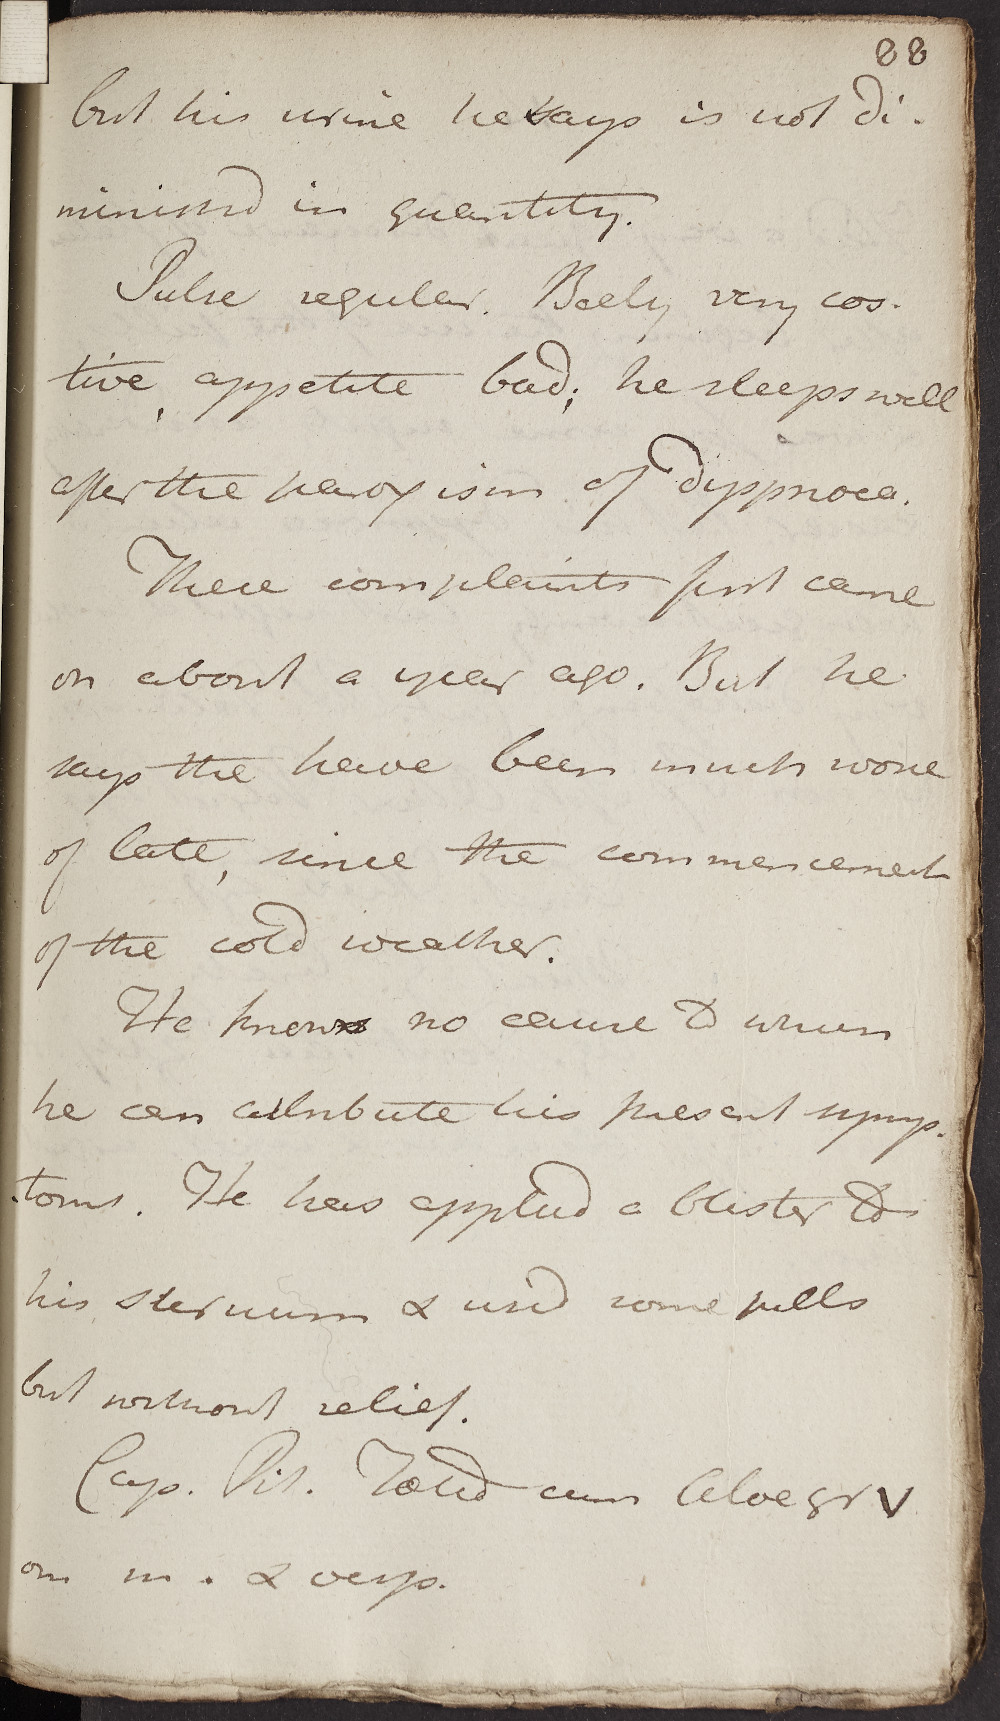 88
but his urine he says is not di-
minished in quantity.
Pulse regular. Belly very cos-
tive, appetite bad; he sleeps well
after the paroxism of dyspnoea.
These complaints first came
on about a year ago. But he
says the have been much worse
of late, since the commencement
of the cold weather.
He knows no cause to whom
he can attribute his present symp-
toms. He has applied a blister to
his sternum & used some pills
but without relief.
Cap. Pil. Foetid cum Aloe gr V
om m. & vesp.